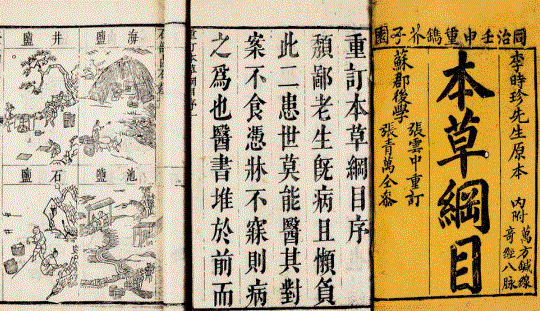 同治壬申重鐫芥子園
李時珍先生原本
內附萬方鍼線
奇經八脉
本草綱目
蘇郡後學
張雲中重訂
張青萬仝參
重訂本草綱目序
頹鄙老生既病且懶負
此二患世莫能醫其對
案不食憑牀不寐則病
之爲也醫書堆於前而
重訂本草綱目序
海鹽
井鹽
池鹽
石鹽